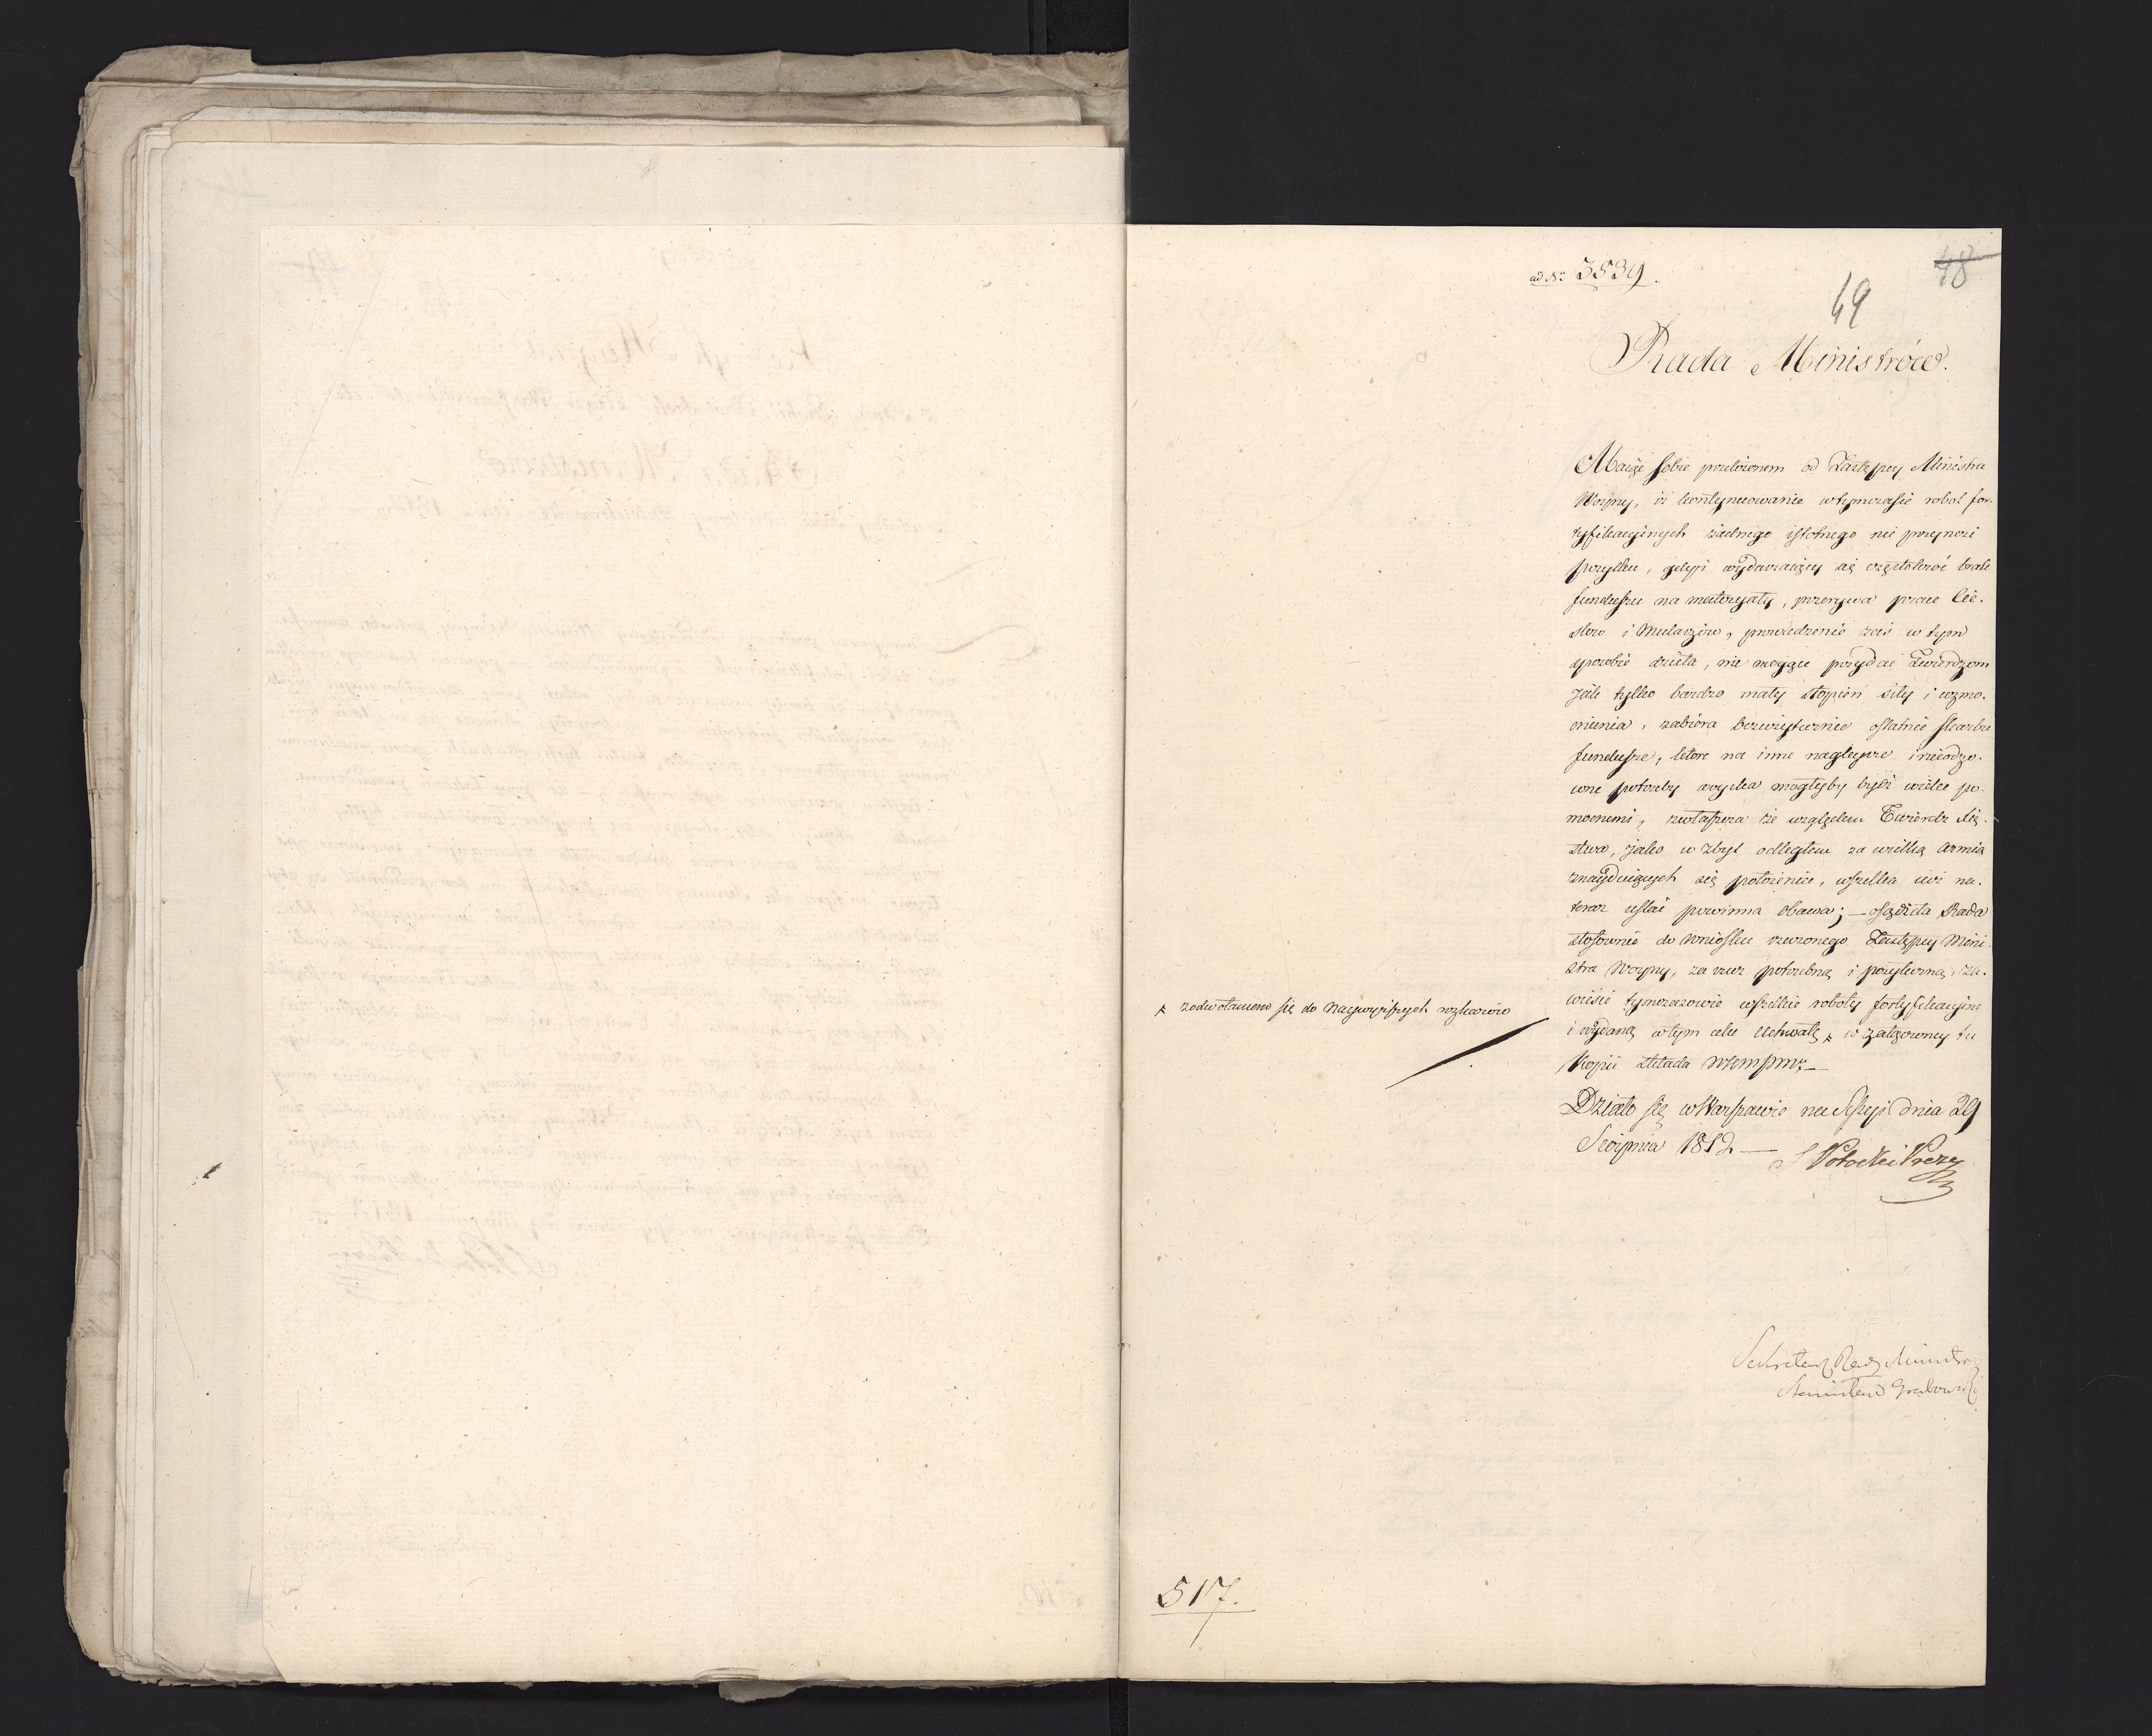 ad No 3539.
48
49
Rada Ministrów.
Maiąc sobie przełożonem od Zastępcy Ministra
Woyny, iż kontynuowanie wtymczasie robot for-
tyfikacyinych żadnego istotnego nie przynosi
pożytku, gdyż wydarzaiący się częstokroć brak
funduszu na materyały, przerywa prace Cie-
slow i Mularzów, prowadzenie zaś w tym
sposobie dzieła, nie mogąc przydać Twierdzom
jak tylko bardzo mały stopień siły i wzmo-
cnienia, zabiera bezużytecznie ostatnie skarbu
fundusze, ktore na inne nagleysze i nieodzo-
wne potrzeby woyska mogłyby bydź wielce po-
mocnemi, zwłaszcza że względem Twierdz Xię-
stwa, jako w zbyt odległem za wielką Armią
znayduiących się położeniu, wszelka iuż na-
teraz ustać powinna obawa; — osądziła Rada
stosownie do wniosku rzeczonego Zastępcy Mini-
stra Woyny, za rzecz potrzebną i pożyteczną, za-
wiesić tymczasowie wszelkie roboty fortyfikacyine
i wydaną wtym celu Uchwałę
z odwołaniem się do Naywyższych rozkazów
w załączoney tu
Kopii składa
Działo się w Warszawie na Sessyi dnia 29
Sierpnia 1812 —
S Potocki Prezes
Sekretarz Rady Ministrow
Stanisław Grabowski
517.